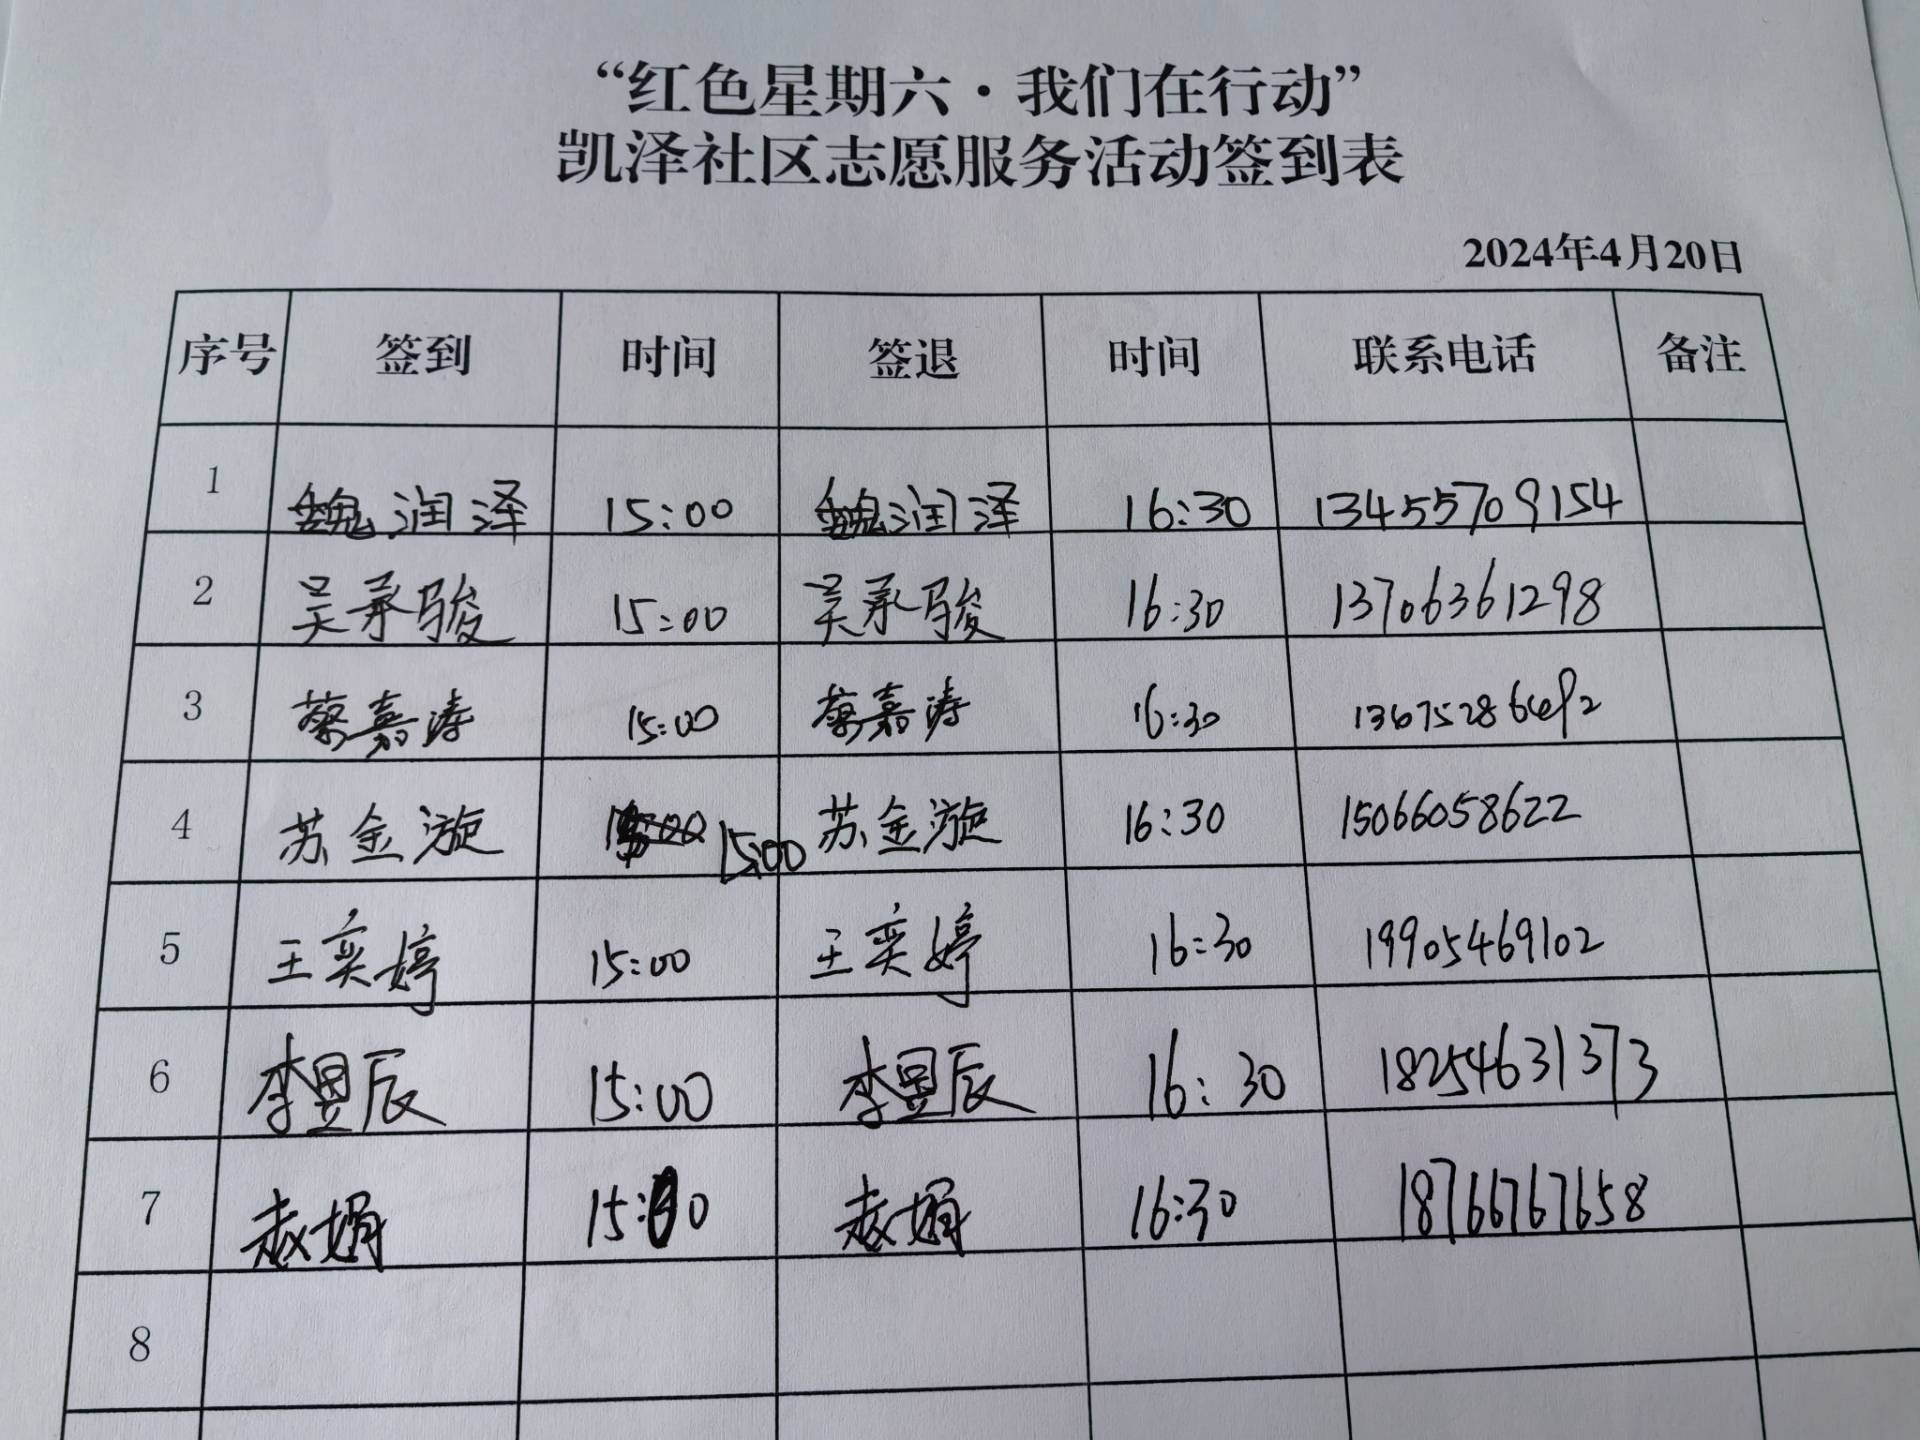 “红色星期六·我们在行动”
凯泽社区志愿服务活动签到表
2024年4月20日
序号 签到 时间 签退 时间 联系电话 备注
1 魏润泽 15:00 魏润泽 16:30 13455709154
2 吴承骏 15:00 吴承骏 16:30 13706361298
3 蔡嘉涛 15:00 蔡嘉涛 16:30
4 苏金漩 15:00 苏金漩 16:30 15066058622
5 王奕婷 15:00 王奕婷 16:30 19905469102
6 李昱辰 15:00 李昱辰 16:30 18254631373
7 赵娟 15:00 赵娟 16:30 18766767658
8